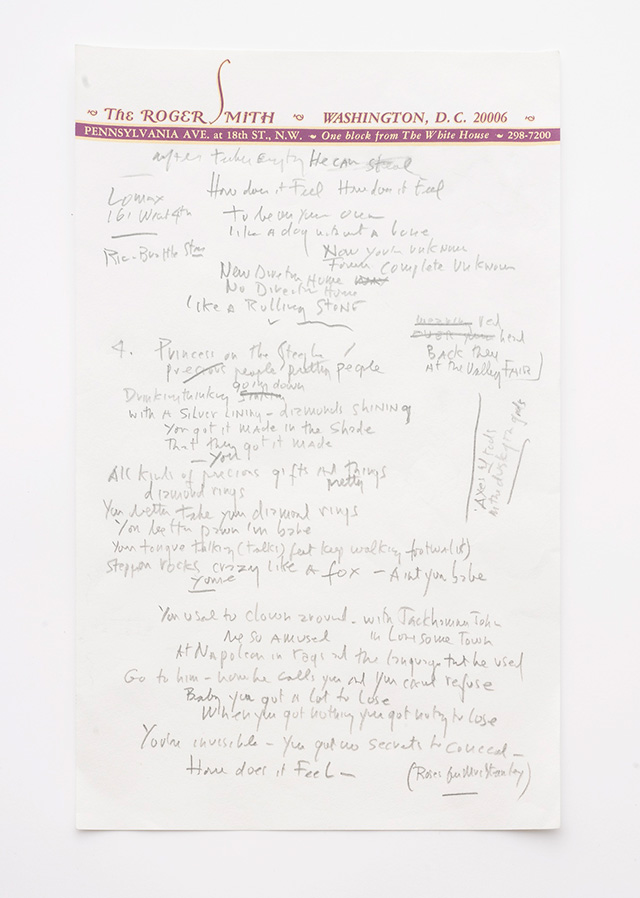 The ROGER SMITH WASHINGTON, D.C. 20006
PENNSYLVANIA AVE. at 18th ST., N.W. One block from The White House 298-7200
after He can steal
How does it Feel How does it Feel
Lomax
161 West 4th
to be on your own
like a day without a bone
Now you're unknown
Forever complete unknown
New Direction Home
No Direction Home
like a Rolling STONE
red
OVER your head
BACK there
AT the Valley FAIR
4. Princess on the Steeple
precious people / pretty people
going down
Drinking thinking
with A SILVER LINING - diamonds SHINING
You got it MADE in the SHADE
That they got it MADE
- you
All kinds of precious gifts and things
pretty
diamond rings
You better take your diamond rings
You better pawn 'im babe
Your tongue talking (talks) feet keep walking
Steppin rocks crazy like A fox - Aint you babe
You used to clown around - with
so Amused in Lonesome Town
At Napoleon in rags and the language that he used
Go to him - now he calls you and you can't refuse
Baby you got a lot to lose
When you got nothing you got nothing to lose
You're invisible - you got no secrets to conceal -
How does it Feel -